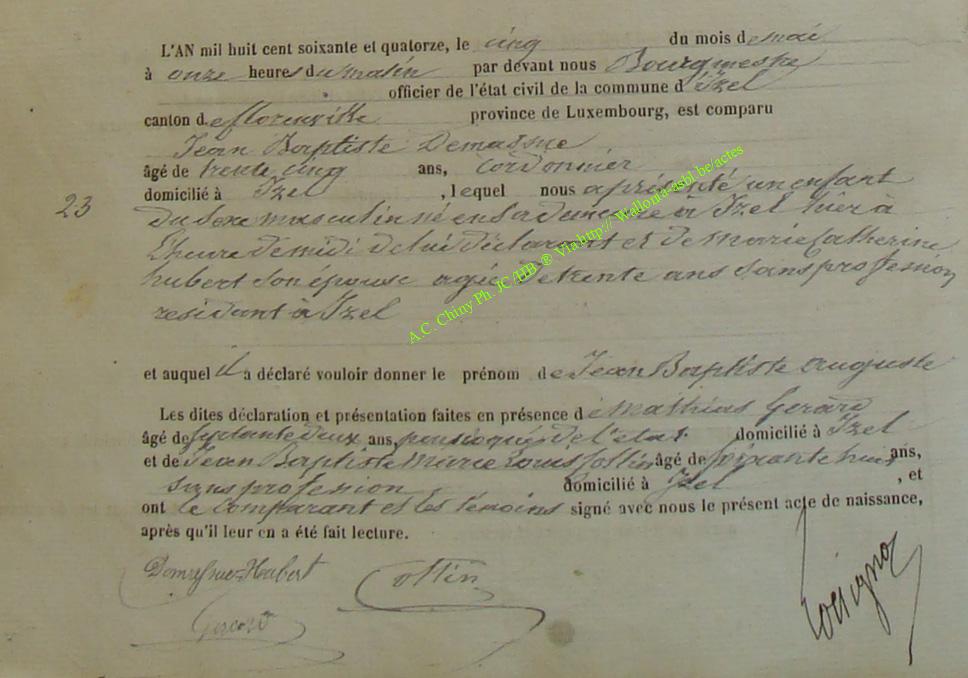 L'AN mil huit cent soixante et quatorze, le cinq du mois de mai
à onze heures du matin par devant nous Bourgmestre
officier de l'état civil de la commune d'Izel
canton de florenville province de Luxembourg, est comparu
Jean Baptiste Demasne
âgé de trente cinq ans, cordonnier
domicilié à Izel, lequel nous a présenté un enfant
23 du sexe masculin né en sa demeure à Izel hier à
l'heure de midi de lui déclarant et de Marie Catherine
hubert son épouse agée de trente ans sans profession
résidant à Izel
et auquel il a déclaré vouloir donner le prénom de Jean Baptiste auguste
Les dites déclaration et présentation faites en présence de Mathias Gerard
âgé de septante deux ans, pensionné de l'etat domicilié à Izel
et de Jean Baptiste Marie Louis Collin âgé de soixante huit ans,
sans profession domicilié à Izel, et
ont le comparant et les témoins signé avec nous le présent acte de naissance,
après qu'il leur en a été fait lecture.
Hubert Collin
Gerard
A.C. Chiny Ph. JC /HB ® Via http:// Wallonia-asbl.be/actes